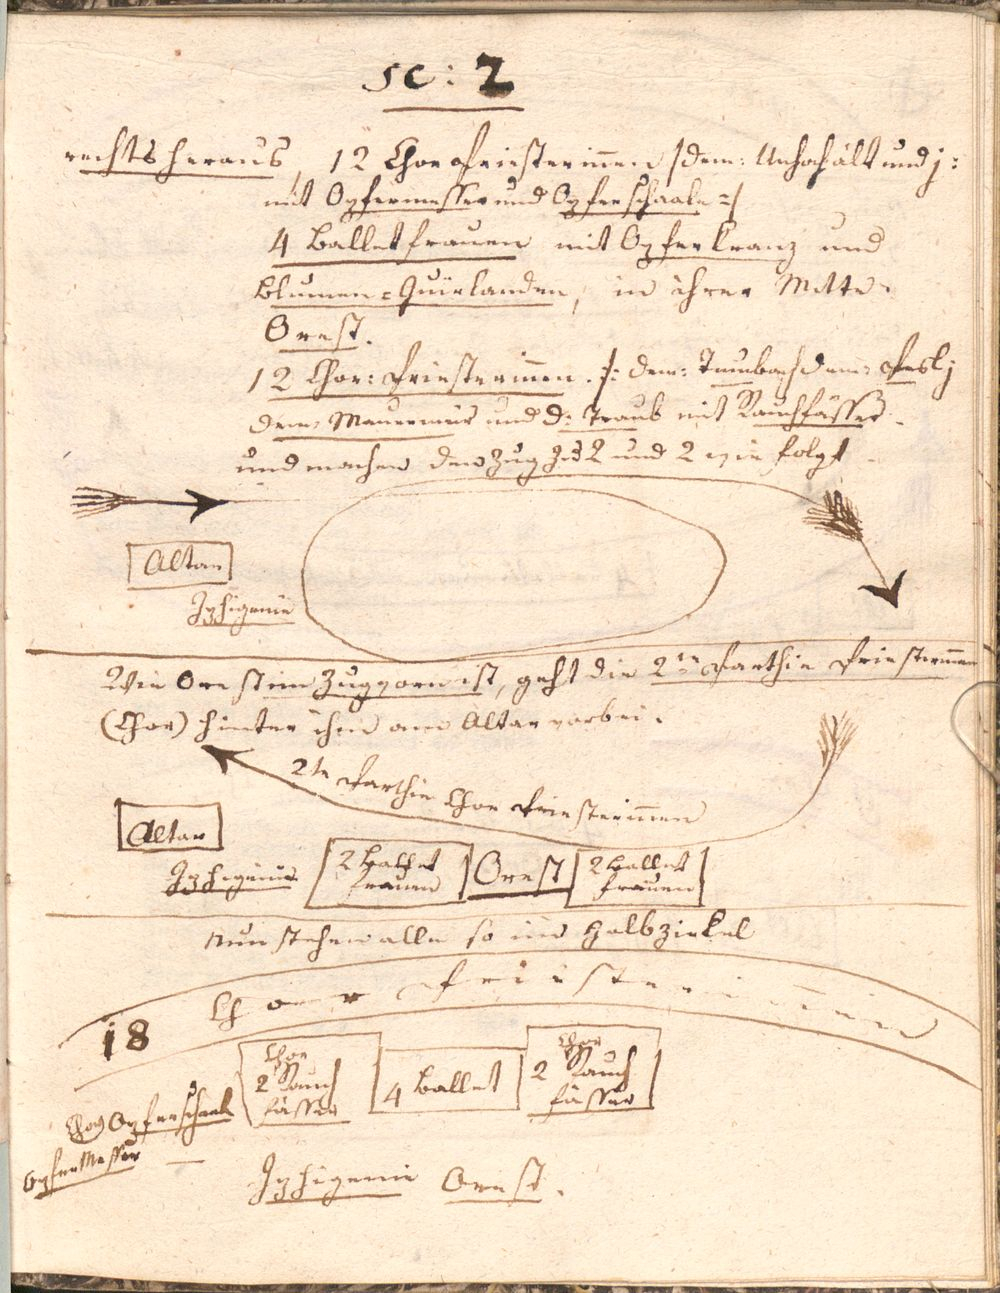 sc: 2
rechts heraus, 12 Chor Priesterinnen /dem: und j:
mit Opfermesser und Opferschaale =/
4 Ballet frauen mit Opfer Kranz und
Blumen = Guirlanden, in ihrer Mitte
Orest.
12 Chor: Priesterinnen. /: dem: dem:
dem: und d: Traub mit Rauchfässer.
und machen den Zug zu 2 und 2 wie folgt
Altar
Iphigenie
Wie Orest im Zug vorn ist, geht die 2te Parthie Priesterinnen
(Chor) hinter ihm am Altar vorbei.
2te Parthie Chor Priesterinnen
Altar
Iphigenie
2 Ballet
frauen
Orest
2 Ballet
frauen
Nun stehen alle so im Halbzirkel
Chor Priesterinnen
18
Chor
2 Rauch
fässer
4 Ballet
Chor
2 Rauch
fässer
Chor Opferschaale
Opfer Messer
Iphigenie Orest.